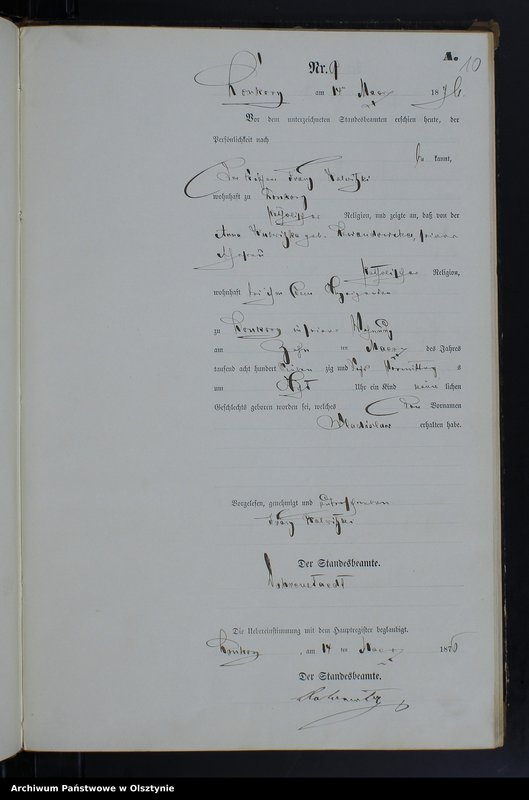 A.
10
Nr. 9
am 14ten März 1876
Vor dem unterzeichneten Standesbeamten erschien heute, der
Persönlichkeit nach
be kannt,
Franz
wohnhaft zu
katholischer Religion, und zeigte an, daß von der
Anna geb. seiner
Ehefrau
katholischer Religion,
wohnhaft bei ihm
zu in seiner Wohnung
am Zehn ten März des Jahres
tausend acht hundert sieben zig und sechs Vormittag s
um Acht Uhr ein Kind männ lichen
Geschlechts geboren worden sei, welches den Vornamen
Wladislaw erhalten habe.
Vorgelesen, genehmigt und unterschrieben
Franz
Der Standesbeamte.
Die Uebereinstimmung mit dem Hauptregister beglaubigt.
, am 14 ten März 1876
Der Standesbeamte.
Archiwum Państwowe w Olsztynie